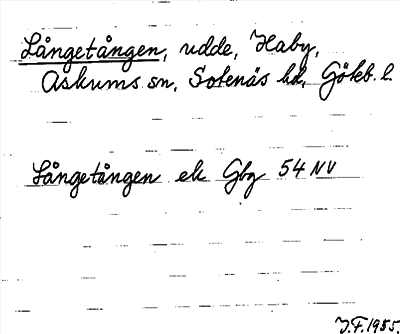 Långetången, udde, Haby,
Askums sn, Sotenäs hd, Göteb. l.
Långetången ek Gbg 54 NV
J.F. 1955.